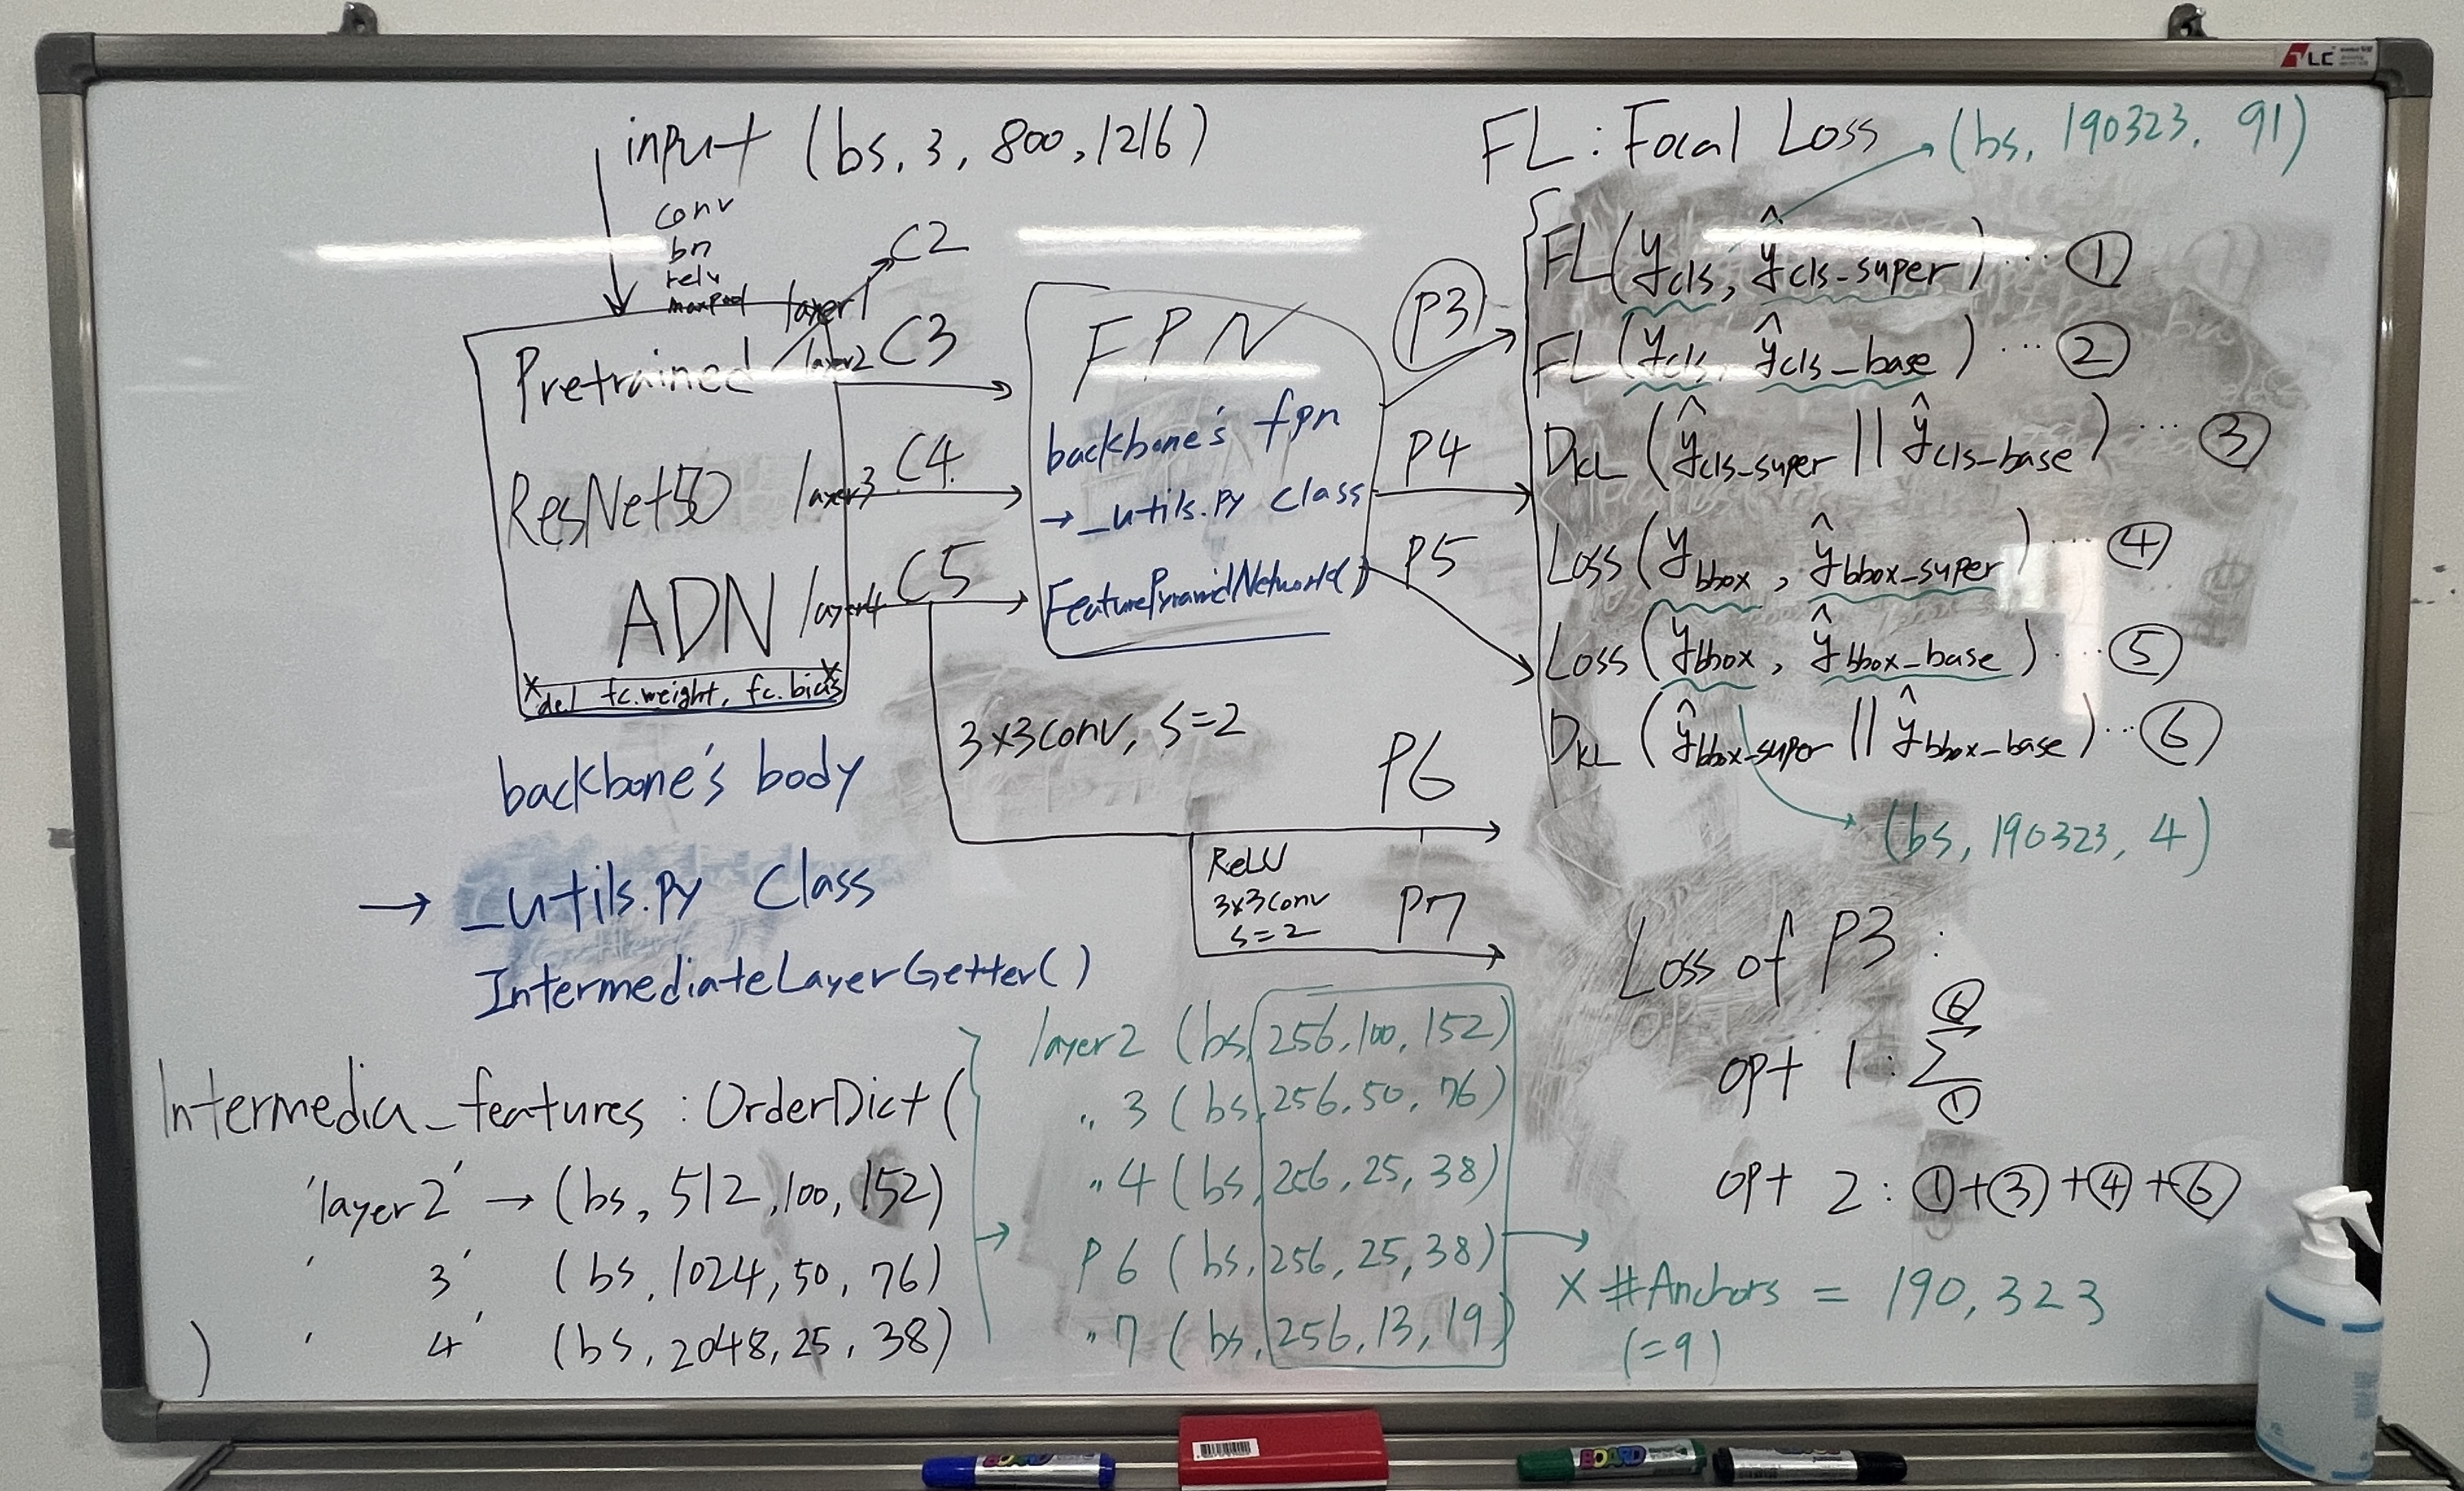 LC
input (bs, 3, 800, 1216)
conv
bn
relu
maxpool
layer1
C2
Pretrained
layer2
C3
ResNet50
layer3
C4
ADN
layer4
C5
del fc.weight, fc.bias
backbone's body
→ _utils.py Class
IntermediateLayerGetter()
FPN
backbone's fpn
→ _utils.py class
FeaturePyramidNetwork()
P3
P4
P5
3x3conv, s=2
P6
ReLU
3x3conv
s=2
P7
FL : Focal Loss
(bs, 190323, 91)
FL(y_cls, ŷ_cls_super) ... ①
FL(y_cls, ŷ_cls_base) ... ②
D_KL (ŷ_cls_super || ŷ_cls_base) ... ③
Loss(y_bbox, ŷ_bbox_super) ... ④
Loss(y_bbox, ŷ_bbox_base) ... ⑤
D_KL (ŷ_bbox_super || ŷ_bbox_base) ... ⑥
(bs, 190323, 4)
Loss of P3 :
opt 1 : Σ ① ⑥
opt 2 : ①+③+④+⑥
Intermedia_features : OrderDict(
'layer2' → (bs, 512, 100, 152)
' 3' (bs, 1024, 50, 76)
' 4' (bs, 2048, 25, 38)
)
layer2 (bs, 256, 100, 152)
〃 3 (bs, 256, 50, 76)
〃 4 (bs, 256, 25, 38)
P6 (bs, 256, 25, 38)
〃 7 (bs, 256, 13, 19)
x #Anchors = 190,323
(=9)
BOARD
BOARD